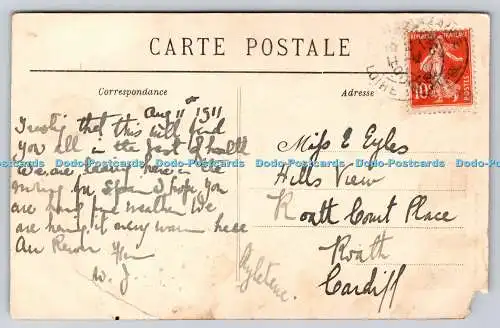 CARTE POSTALE
Correspondance
Adresse
Aug 11th 1911
Trusting that this will find
you all in the best of health
We are leaving here in the
morning for Spain I hope you
are having fine weather We
are having it very warm here
Au Revoir
W. J
Miss E Eyles
Hills View
Roath Court Place
Roath
Cardiff
Angleterre
REPUBLIQUE FRANÇAISE
10c
POSTES
LOIRE
Dodo-Postcards Dodo-Postcards Dodo-Postcards Dodo-Postcards Dodo-Postcards Dodo-Postcards